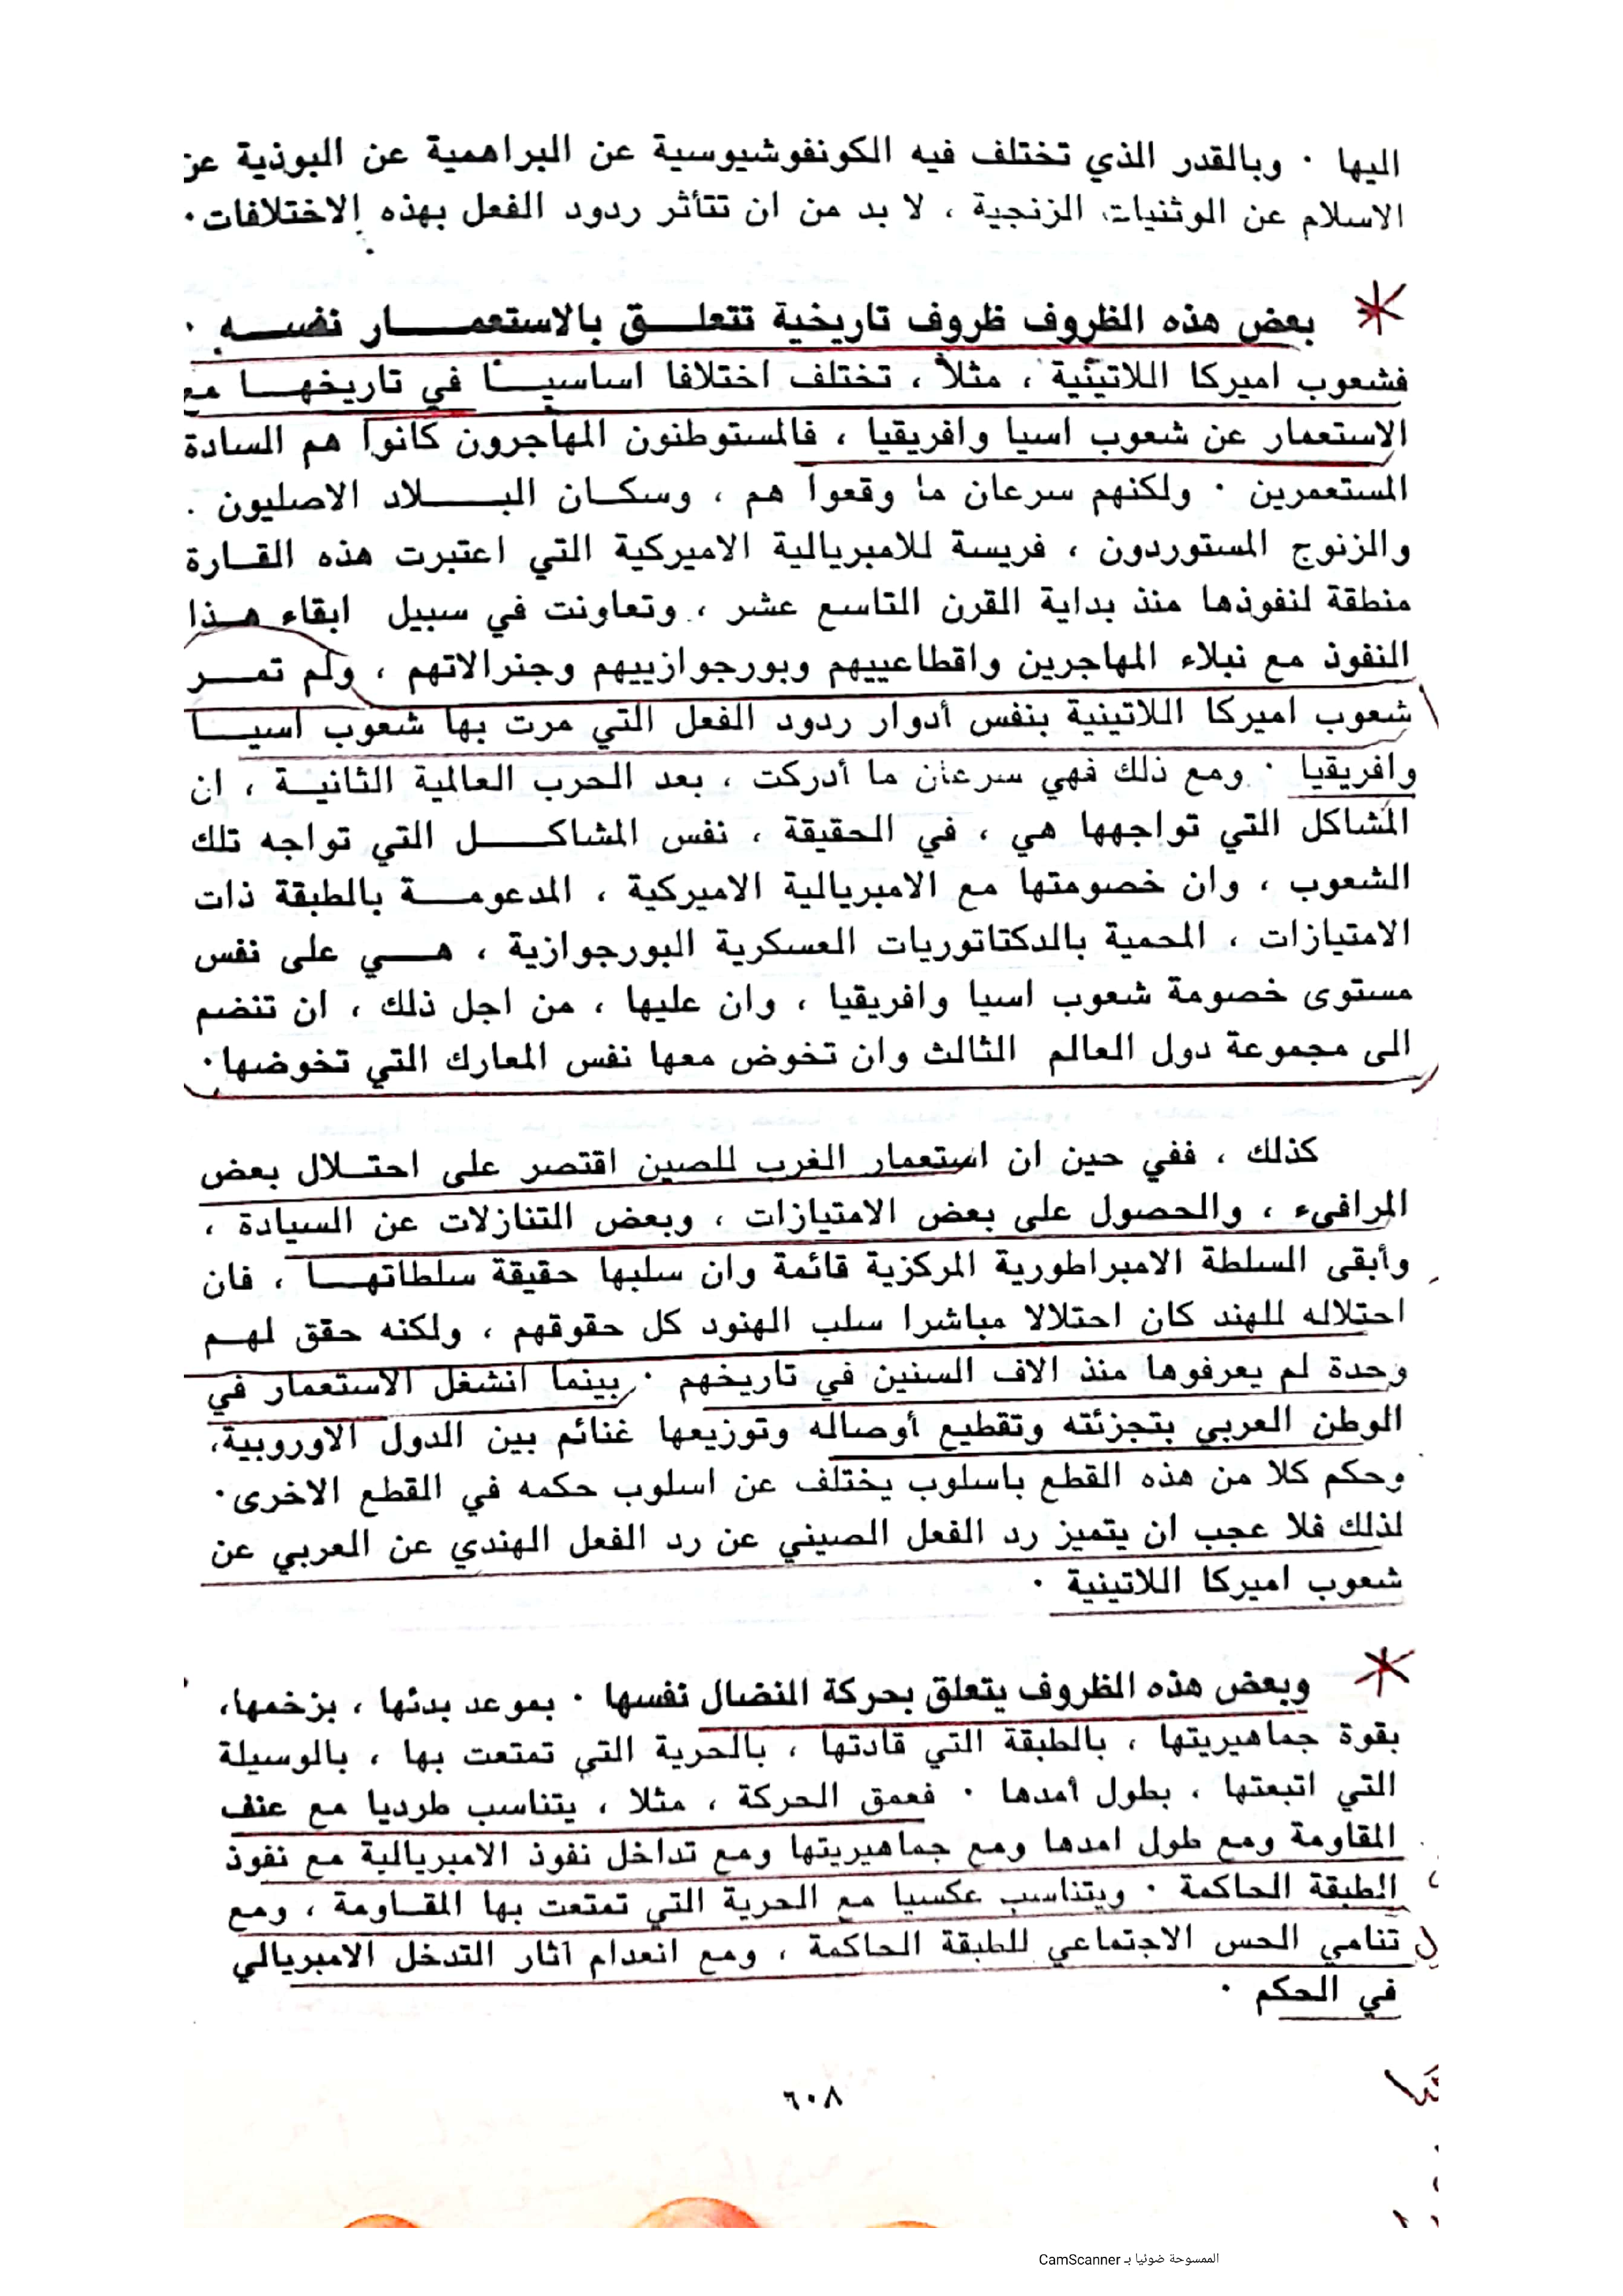 اليها · وبالقدر الذي تختلف فيه الكونفوشيوسية عن البراهمية عن البوذية عن
الاسلام عن الوثنيات الزنجية ، لا بد من ان تتأثر ردود الفعل بهذه الاختلافات·
بعض هذه الظروف ظروف تاريخية تتعلــق بالاستعمــــار نفســـه ·
فشعوب اميركا اللاتينية ، مثلاً ، تختلف اختلافا اساسيــا في تاريخهــا مع
الاستعمار عن شعوب اسيا وافريقيا ، فالمستوطنون المهاجرون كانوا هم السادة
المستعمرين · ولكنهم سرعان ما وقعوا هم ، وسكــان البـــــلاد الاصليون .
والزنوج المستوردون ، فريسة للامبريالية الاميركية التي اعتبرت هذه القــارة
منطقة لنفوذها منذ بداية القرن التاسع عشر ، وتعاونت في سبيل ابقاء هــذا
النفوذ مع نبلاء المهاجرين واقطاعييهم وبورجوازييهم وجنرالاتهم ، ولم تمــــر
شعوب اميركا اللاتينية بنفس أدوار ردود الفعل التي مرت بها شعوب اسيـــا
وافريقيا · ومع ذلك فهي سرعان ما أدركت ، بعد الحرب العالمية الثانيــة ، ان
المشاكل التي تواجهها هي ، في الحقيقة ، نفس المشاكـــــل التي تواجه تلك
الشعوب ، وان خصومتها مع الامبريالية الاميركية ، المدعومـــة بالطبقة ذات
الامتيازات ، المحمية بالدكتاتوريات العسكرية البورجوازية ، هـــي على نفس
مستوى خصومة شعوب اسيا وافريقيا ، وان عليها ، من اجل ذلك ، ان تنضم
الى مجموعة دول العالم الثالث وان تخوض معها نفس المعارك التي تخوضها·
كذلك ، ففي حين ان استعمار الغرب للصين اقتصر على احتــلال بعض
المرافىء ، والحصول على بعض الامتيازات ، وبعض التنازلات عن السيادة ،
وأبقى السلطة الامبراطورية المركزية قائمة وان سلبها حقيقة سلطاتهـــا ، فان
احتلاله للهند كان احتلالا مباشرا سلب الهنود كل حقوقهم ، ولكنه حقق لهــم
وحدة لم يعرفوها منذ الاف السنين في تاريخهم · بينما انشغل الاستعمار في
الوطن العربي بتجزئته وتقطيع أوصاله وتوزيعها غنائم بين الدول الاوروبية،
وحكم كلا من هذه القطع باسلوب يختلف عن اسلوب حكمه في القطع الاخرى·
لذلك فلا عجب ان يتميز رد الفعل الصيني عن رد الفعل الهندي عن العربي عن
شعوب اميركا اللاتينية ·
وبعض هذه الظروف يتعلق بحركة النضال نفسها · بموعد بدئها ، بزخمها،
بقوة جماهيريتها ، بالطبقة التي قادتها ، بالحرية التي تمتعت بها ، بالوسيلة
التي اتبعتها ، بطول أمدها · فعمق الحركة ، مثلا ، يتناسب طرديا مع عنف
المقاومة ومع طول امدها ومع جماهيريتها ومع تداخل نفوذ الامبريالية مع نفوذ
الطبقة الحاكمة · ويتناسب عكسيا مع الحرية التي تمتعت بها المقــاومة ، ومع
تنامي الحس الاجتماعي للطبقة الحاكمة ، ومع انعدام آثار التدخل الامبريالي
في الحكم ·
٦٠٨
الممسوحة ضوئيا بـ CamScanner